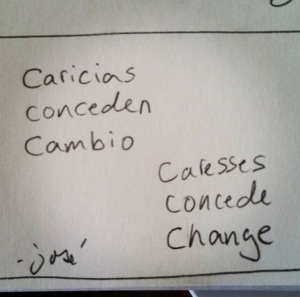 Caricias
conceden
Cambio
Caresses
concede
Change
-josé